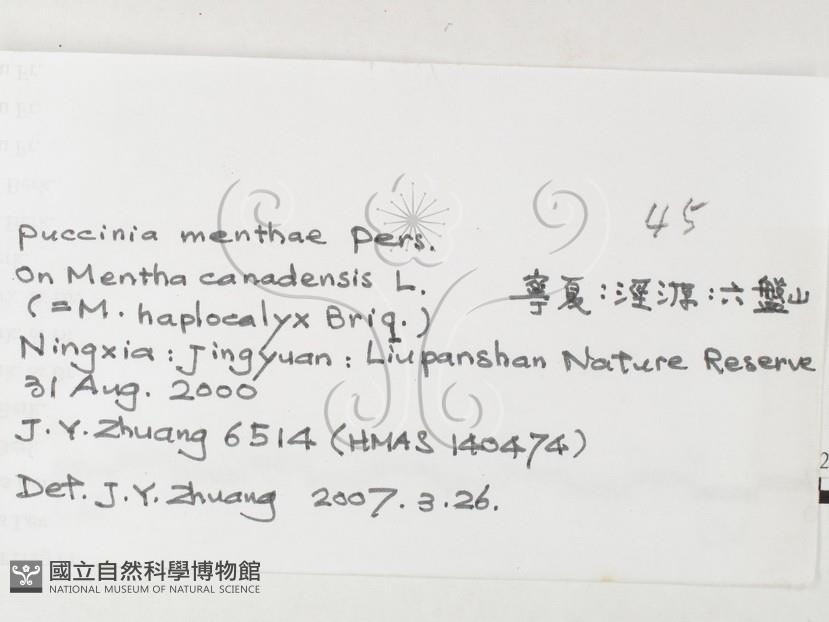 45
puccinia menthae Pers.
On Mentha canadensis L.
寧夏:涇源:六盤山
(=M. haplocalyx Briq.)
Ningxia: Jingyuan: Liupanshan Nature Reserve
31 Aug. 2000
J.Y.Zhuang 6514 (HMAS 140474)
Det. J.Y.Zhuang 2007.3.26.
2
國立自然科學博物館
NATIONAL MUSEUM OF NATURAL SCIENCE